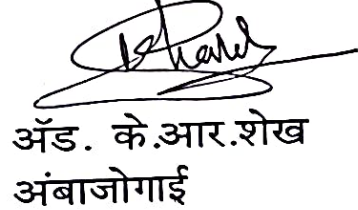 ॲड. के.आर.शेख
अंबाजोगाई